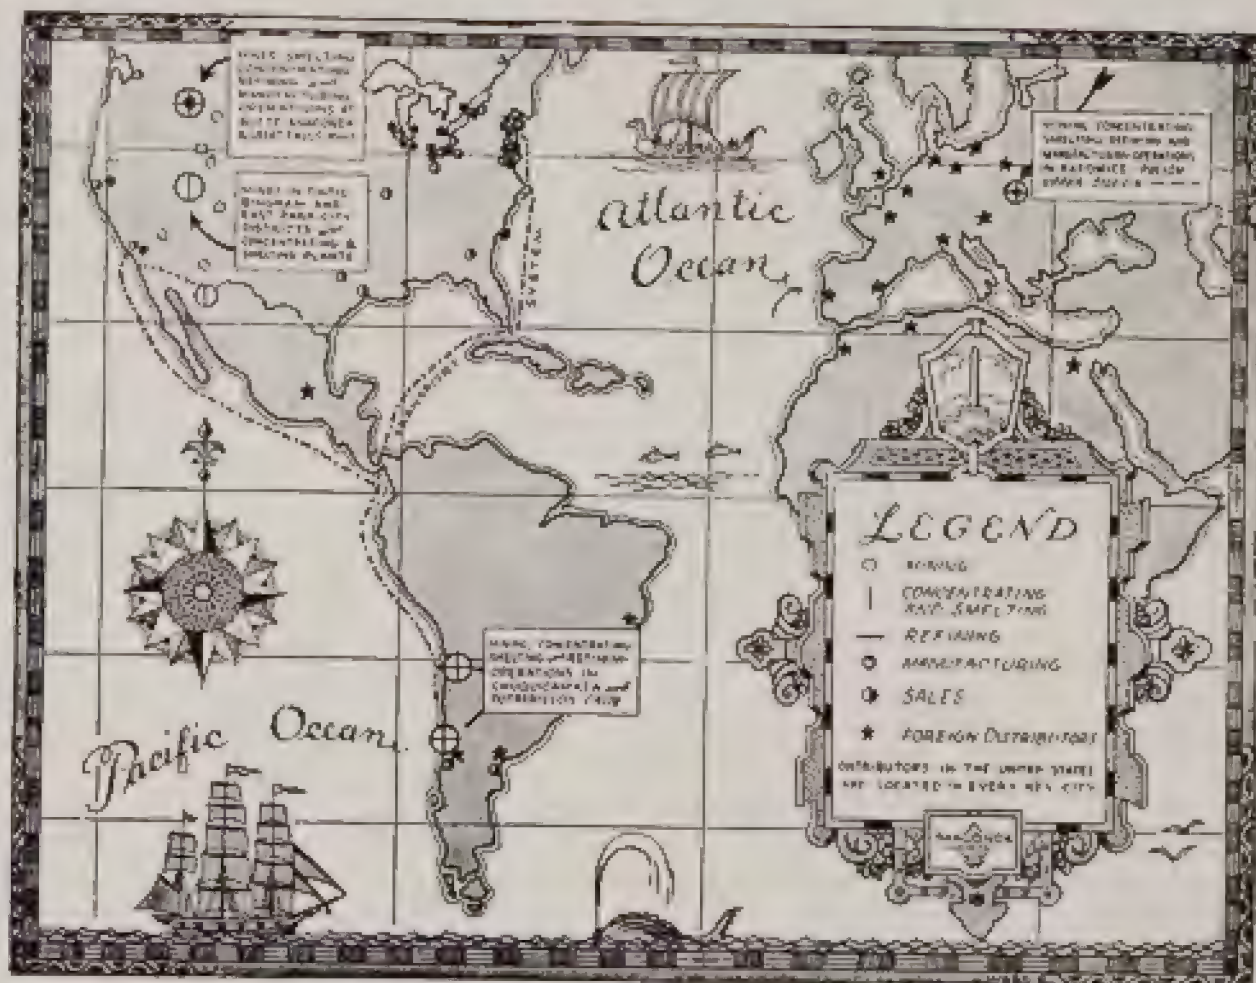 MINES SMELTING
CONCENTRATING
REFINING and
MANUFACTURING
OPERATIONS AT
BUTTE ANACONDA
& GREAT FALLS MONT.
MINES IN TINTIC
BINGHAM AND
EAST PARK CITY
DISTRICTS with
CONCENTRATING &
SMELTING PLANTS
MINING CONCENTRATING
SMELTING REFINING AND
MANUFACTURING OPERATIONS
IN KATOWICE POLISH
UPPER SILESIA
Atlantic
Ocean
MINING, CONCENTRATING
SMELTING and REFINING
OPERATIONS IN
CHUQUICAMATA and
POTRERILLOS CHILE
Pacific Ocean
LEGEND
MINING
CONCENTRATING
AND SMELTING
REFINING
MANUFACTURING
SALES
FOREIGN DISTRIBUTORS
DISTRIBUTORS IN THE UNITED STATES
ARE LOCATED IN EVERY KEY CITY
ANACONDA